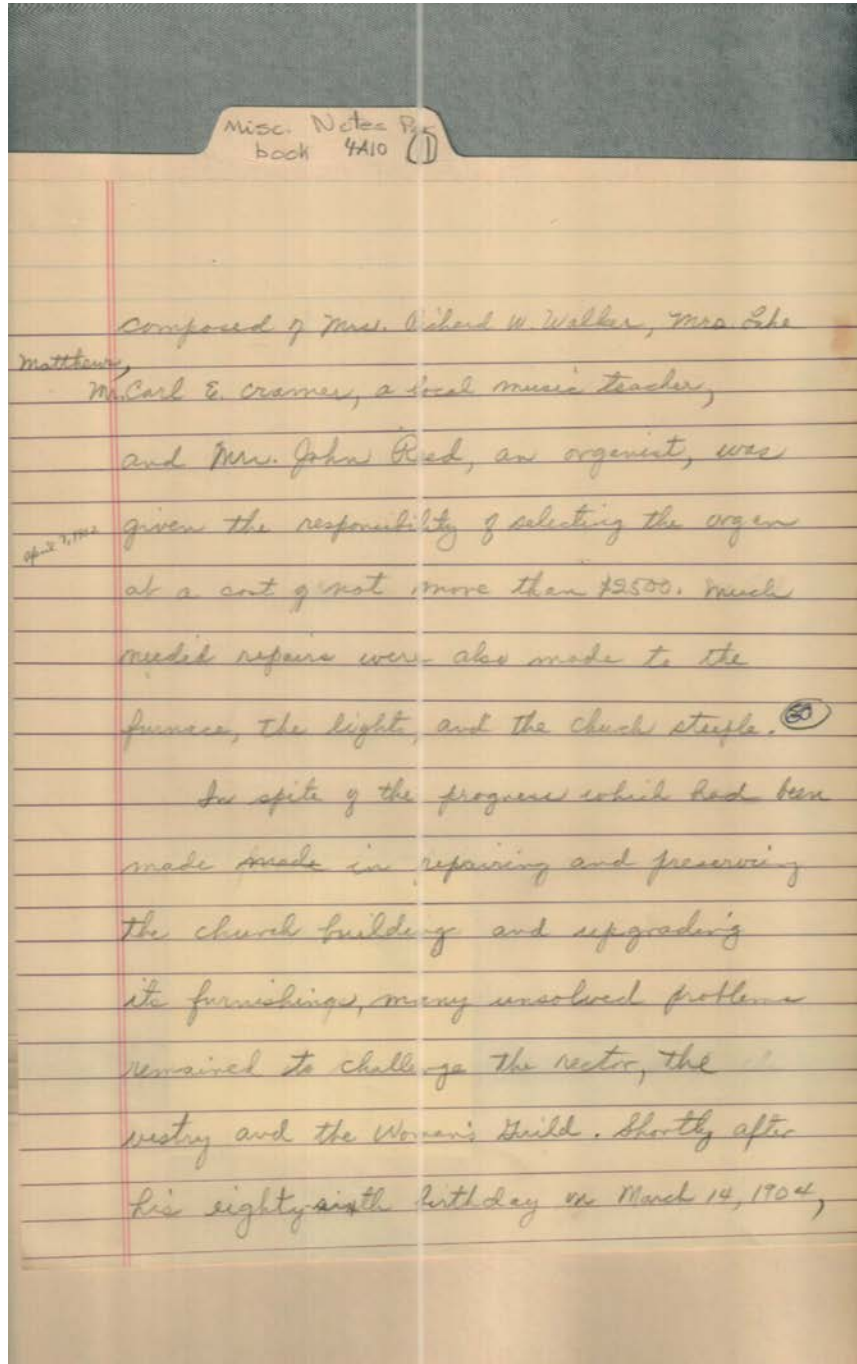 Misc. Notes
book 4A10 (1)
composed of Mrs. Richard W. Walker, Mrs.
Matthews,
Mr. Carl E. Cramer, a local music teacher,
and Mrs. John Reed, an organist, was
given the responsibility of selecting the organ
April 7,
at a cost of not more than $2500. Much
needed repairs were also made to the
furnace, the lights, and the church steeple. 50
In spite of the progress which had been
made made in repairing and preserving
the church building and upgrading
its furnishings, many unsolved problems
remained to challenge the rector, the
vestry and the Woman's Guild. Shortly after
his eighty-sixth birthday on March 14, 1904,